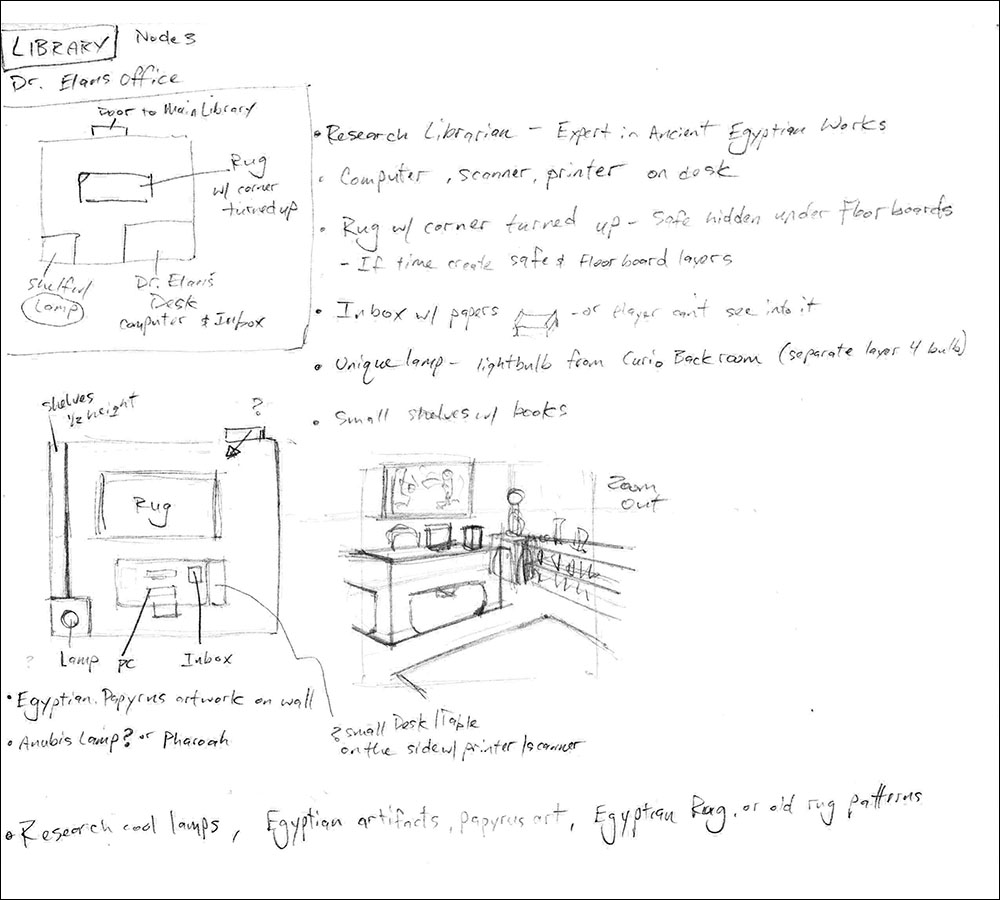 LIBRARY Node 3
Dr. Elaris Office
Door to Main Library
Rug
w/ corner
turned up
Shelf w/
Lamp
Dr. Elaris
Desk
computer & Inbox
• Research Librarian - Expert in Ancient Egyptian Works
• Computer, scanner, printer on desk
• Rug w/ corner turned up - Safe hidden under Floor boards
- If time create safe & Floorboard layers
• Inbox w/ papers - or Player can't see into it
• Unique lamp - lightbulb from Curio Backroom (separate layer 4 bulb)
• Small shelves w/ books
shelves
1/2 height
?
Rug
? Lamp PC Inbox
Zoom
out
• Egyptian Papyrus artwork on wall
• Anubis Lamp? or Pharoah
? small Desk/Table
on the side w/ printer/scanner
• Research cool lamps, Egyptian artifacts, papyrus art, Egyptian Rug, or old rug patterns